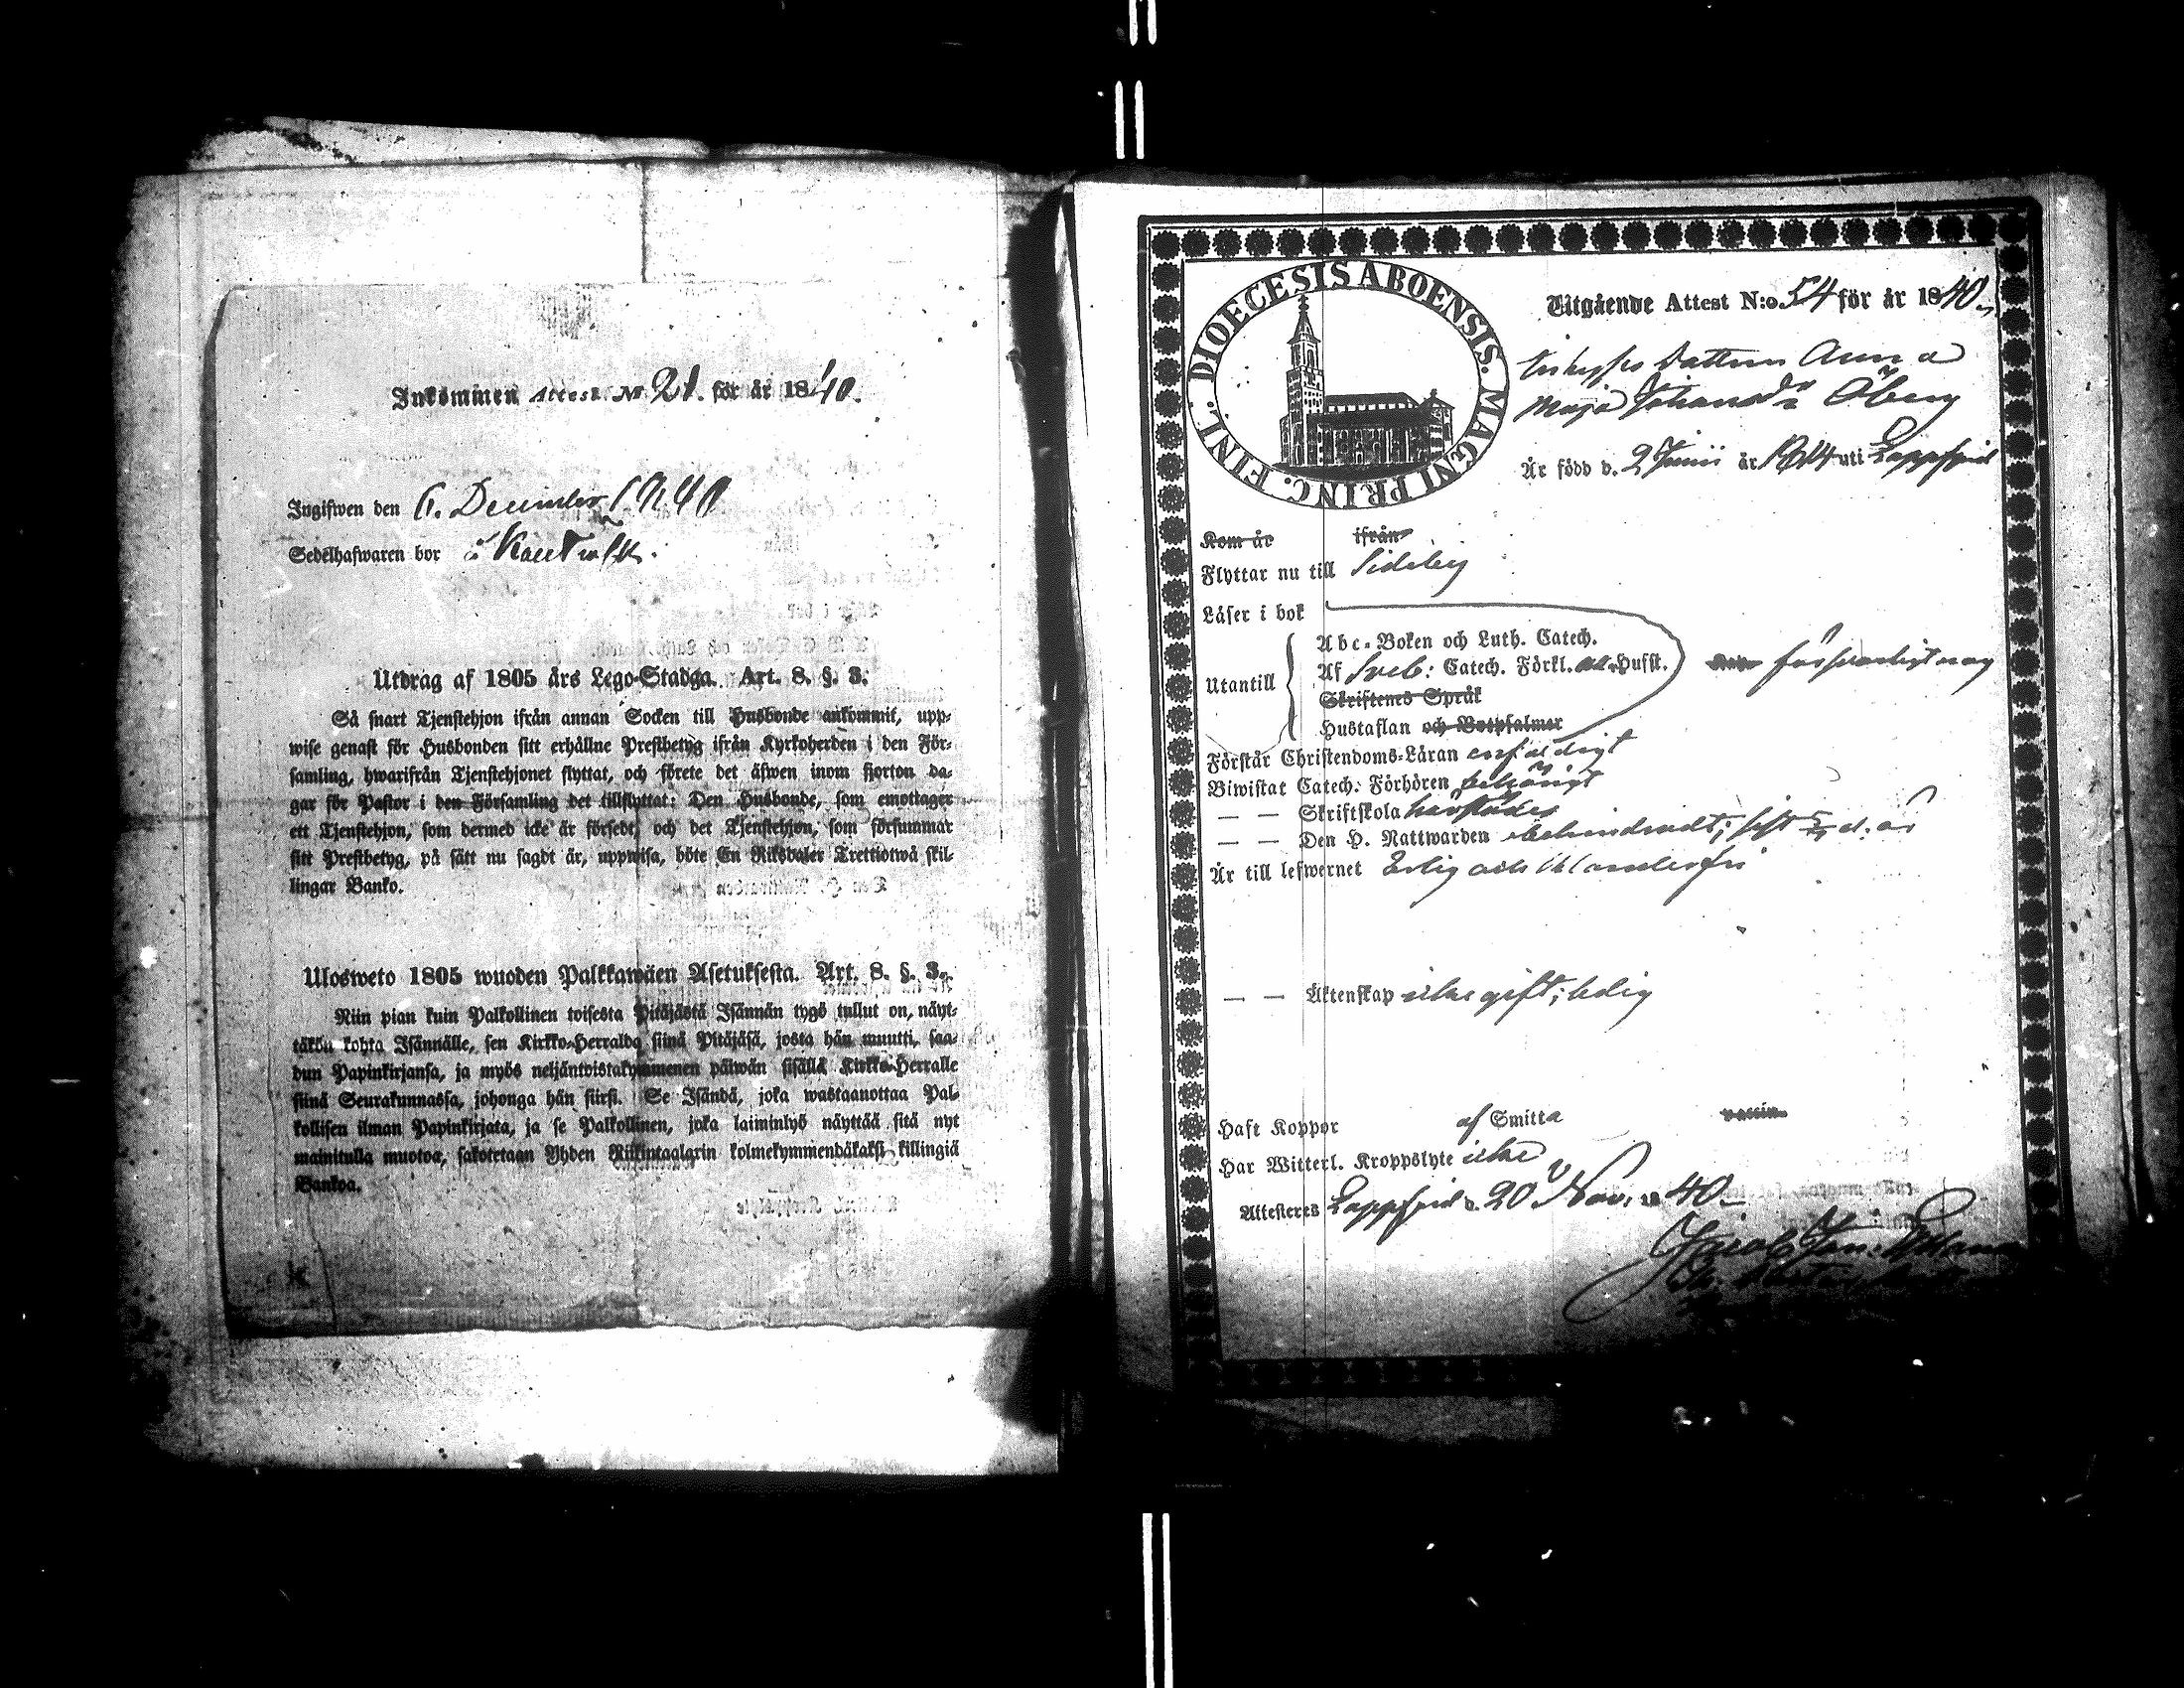 Inkommen Attest N:o 21. för år 1840.
Ingifwen den 6. December 1840
Sedelhafwaren bor i
Utdrag af 1805 års Lego-Stadga. Art. 8. §. 3.
Så snart Tjenstehjon ifrån annan Socken till Husbonde ankommit, upp-
wise genast för Husbonden sitt erhållne Prestbetyg ifrån Kyrkoherden i den För-
samling, hwarifrån Tjenstehjonet flyttat, och förete det äfwen inom fjorton da-
gar för Pastor i den Församling det tillflyttat: Den Husbonde, som emottager
ett Tjenstehjon, som dermed icke är försedt, och det Tjenstehjon, som försummar
sitt Prestbetyg, på sätt nu sagdt är, uppwisa, böte En Riksdaler Trettiotwå skil-
lingar Banko.
Ulosweto 1805 wuoden Palkkawäen Asetuksesta. Art. 8. §. 3.
Niin pian kuin Palkollinen toisesta Pitäjästä Isännän tygö tullut on, näyt-
täkön kohta Isännälle, sen Kirkko-Herralda siinä Pitäjäsä, josta hän muutti, saa-
dun Papinkirjansa, ja myös neljäntoistakymmenen päiwän sisällä Kirkko-Herralle
siinä Seurakunnassa, johonga hän siirsi. Se Isändä, joka wastaanottaa Pal-
kollisen ilman Papinkirjata, ja se Palkollinen, joka laiminlyö näyttää sitä nyt
mainitulla muotoa, sakotetaan Yhden Riikintaalarin kolmekymmendäkaksi killingiä
Bankoa.
DIOECESIS ABOENSIS. MAGNI PRINC. FINL.
Utgående Attest N:o 54 för år 1840
Inhyses Dattren Anna
Maja Johansdr Öberg
Är född d. 2 Junii år 1814 uti Lappfjerd
Kom år ifrån
Flyttar nu till Sideby
Läser i bok
Abc-Boken och Luth. Catech.
Utantill Af Sveb: Catech. Förkl. Hufst. försvarligt nog
Skriftenes Språk
Hustaflan och Botpsalmer
Förstår Christendoms-Läran enfaldigt
Biwistat Catech. Förhören behörigt
— — Skriftskola
— — Den H. Nattwarden obehindradt; sist d. å.
Är till lefwernet Ärlig och Klanderfri
— — Äktenskap icke gift; ledig
Haft Koppor af Smitta
Har Witterl. Kroppslyte icke
Attesteres Lappfjerd d. 20 Nov. 1840
Jacob Joh: